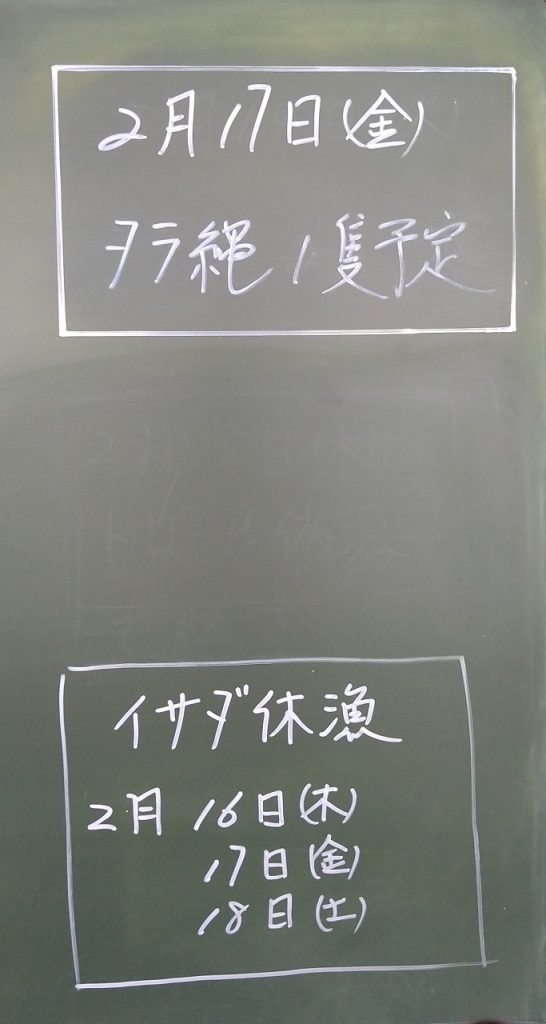 2月17日(金)
タラ縄1隻予定
イサダ休漁
2月 16日(木)
17日(金)
18日(土)